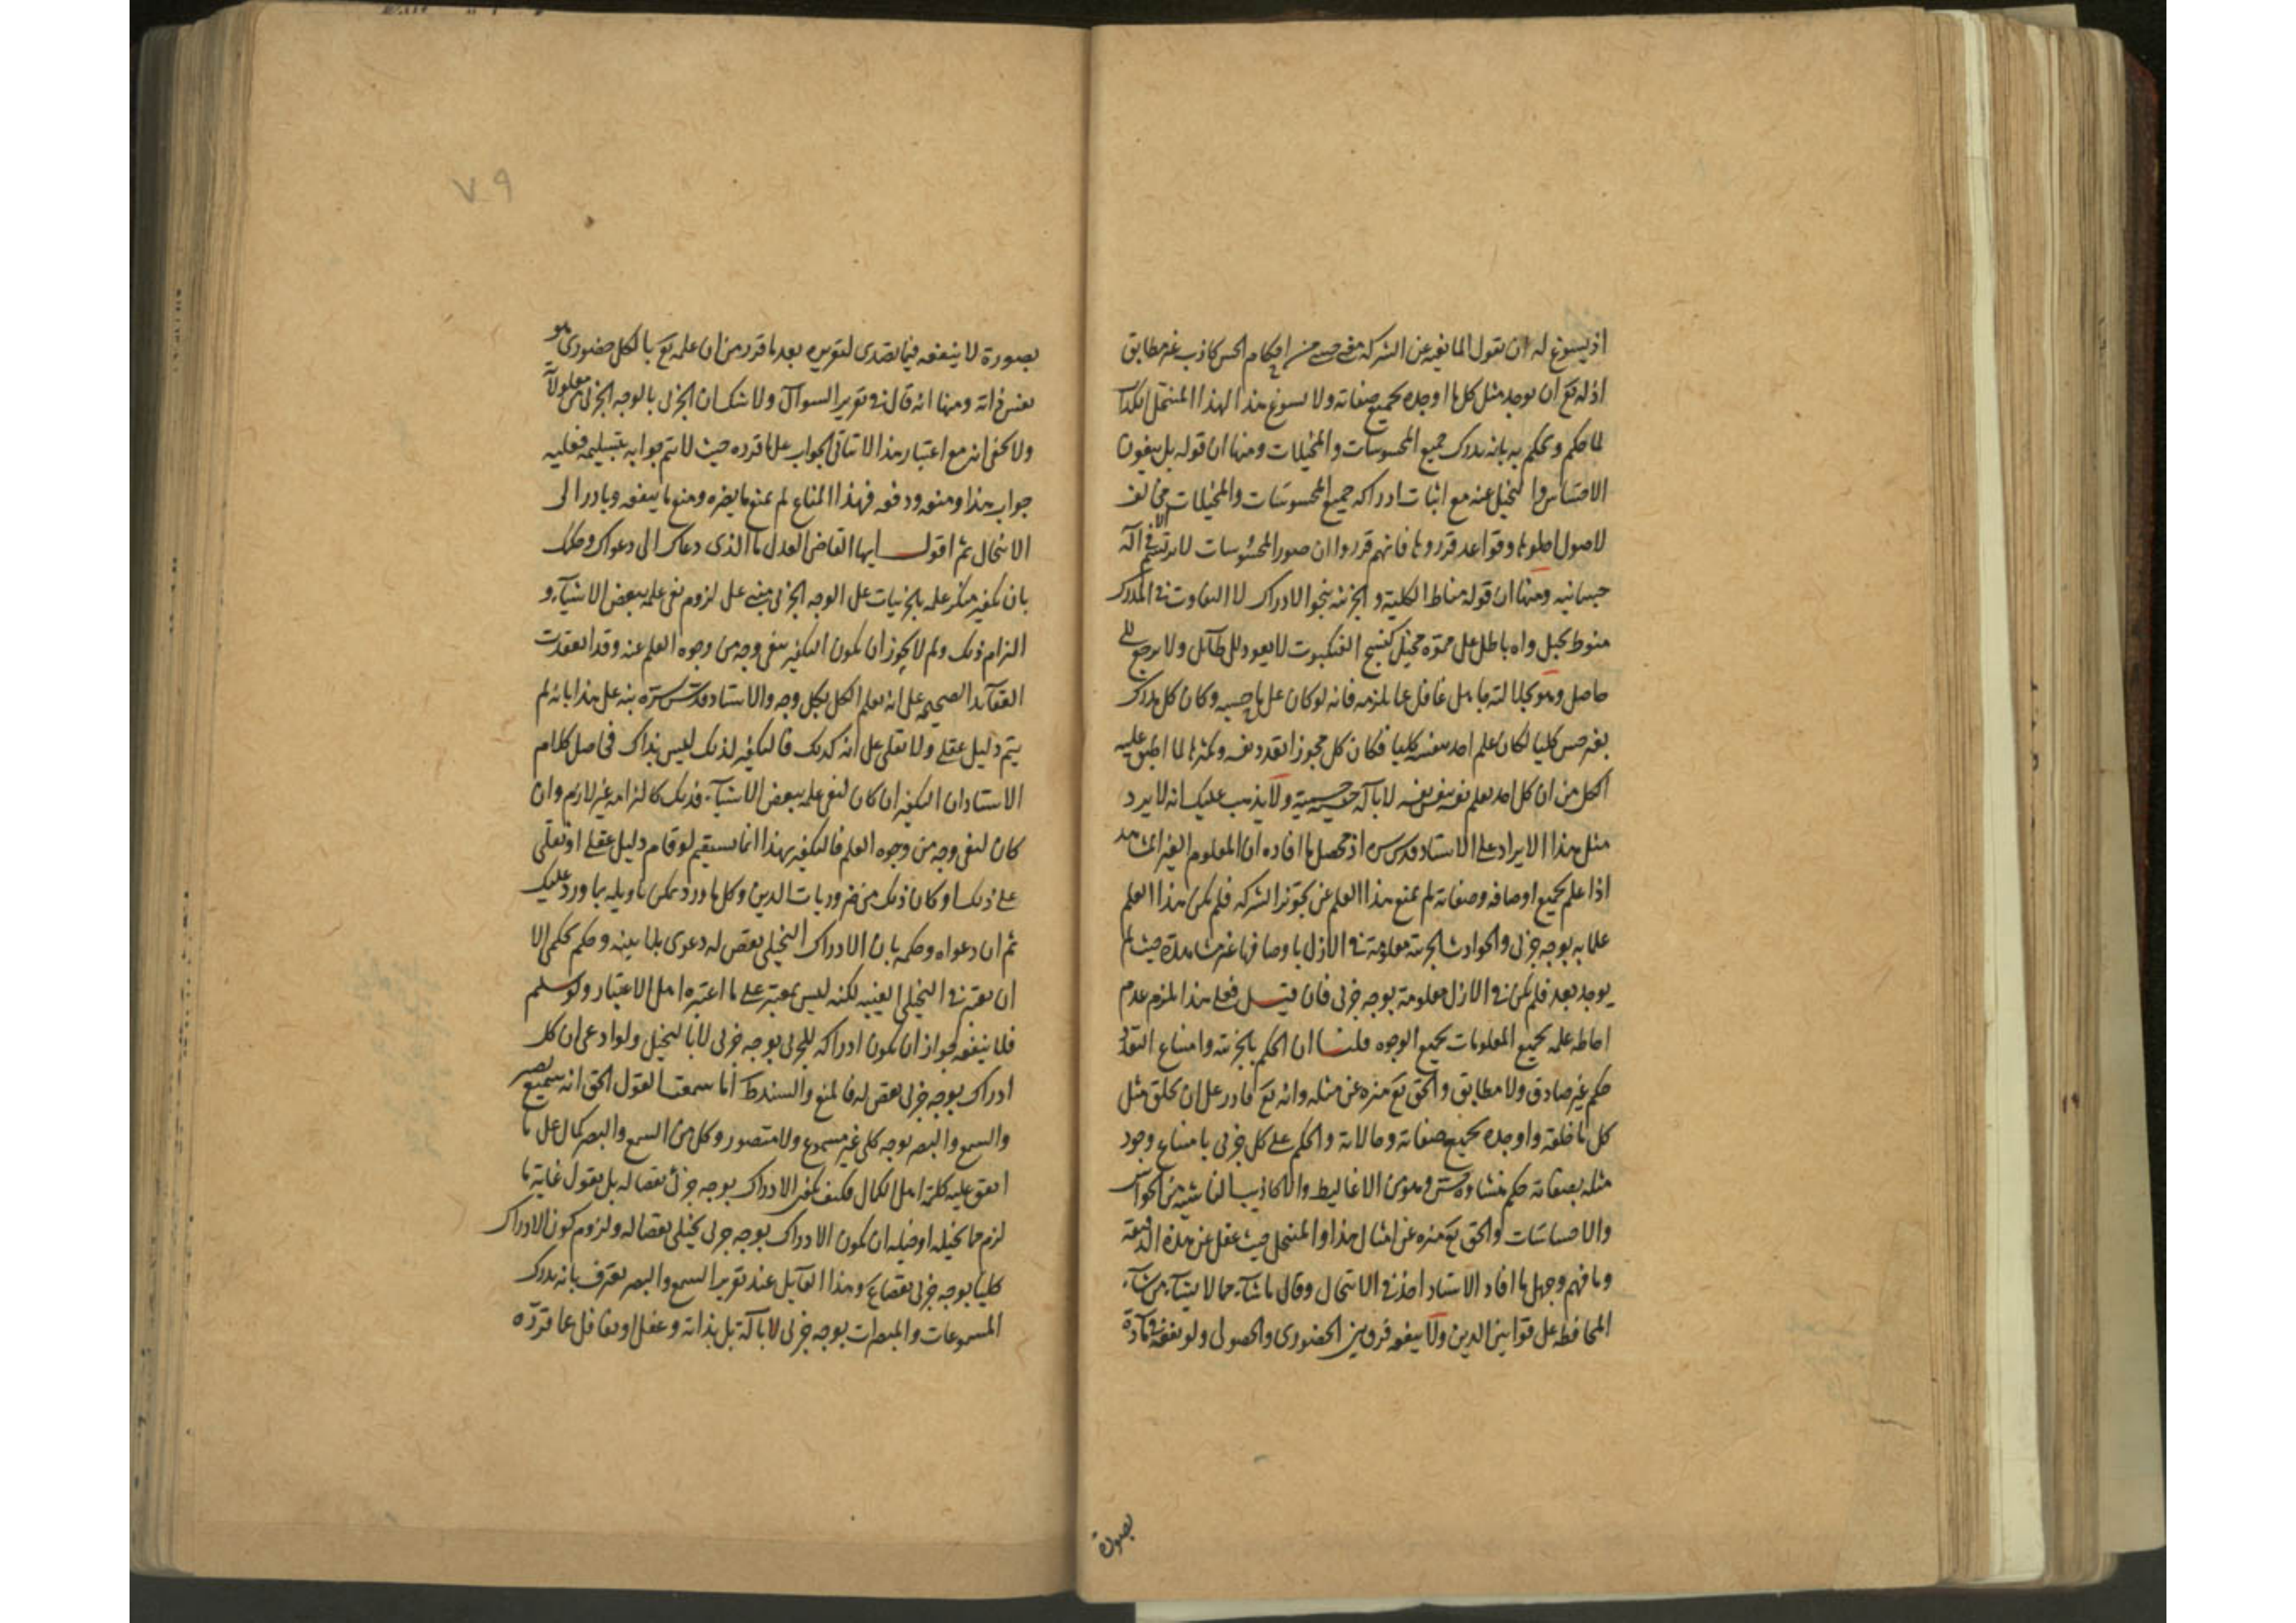 اذ يسوغ له ان يقول المانعية عن الشركة حكم من احكام الحس كاذب غير مطابق
اذ له تع ان يوجد مثل كل ما اوجده بجميع صفاته ولا يسوغ هذا لهذا المنتحل
لما حكم ويحكم به بانه يدرك جميع المحسوسات والمخيلات ومنها ان قوله بل ينفون
الاحساس والتخيل عنه مع اثبات ادراكه جميع المحسوسات والمخيلات مخالف
لاصول اصلوها وقواعد قرروها فانهم قرروا ان صور المحسوسات لا ترتسم الا في آلة
جسمانيه ومنها ان قوله مناط الكلية والجزئية نحو الادراك لا التفاوت في المدرك
منوط بحبل واه باطل على مموّه مخيل كنسج العنكبوت لا يعود الى طائل ولا يرجع الى
حاصل وهو كجلالته جاهل غافل عما يلزمه فانه لو كان على ما حسبه وكان كل مدرك
بغير حس كليا لكان علم احد بنفسه كليا فكان كل مجوزا تعدد نفسه وتكثرها لما اطبق عليه
الكل من ان كل احد يعلم نفسه بنفسه لا بآلة حسية ولا يذهب عليك انه لا يرد
مثل هذا الايراد على الاستاد قدس سره اذ محصل ما افاده ان المعلوم الغير المشاهد
اذا علم بجميع اوصافه وصفاته لم يمنع هذا العلم عن تجويز الشركه فلم يكن هذا العلم
علما به بوجه جزئى والحوادث الجزئية معلومة في الازل باوصافها غير مشاهدة حيث لم
يوجد بعد فلم يكن في الازل معلومة بوجه جزئى فان قيل فعلى هذا يلزم عدم
احاطة علمه بجميع المعلومات بجميع الوجوه قلنا ان الحكم بالجزئية وامتناع التعدد
حكم غير صادق ولا مطابق والحق تع منزه عن مثله وانه تع قادر على ان يخلق مثل
كل ما خلقه واوجده بجميع صفاته وحالاته والحكم على كل جزئى بامتناع وجود
مثله بصفاته حكم منشاؤه الحس وهو من الاغاليط والاكاذيب الناشية من الحواس
والاحساسات والحق تع منزه عن امثال هذا والمنتحل حيث غفل عن هذه الدقيقة
وما فهم وجهل ما افاد الاستاد اخذ في الانتحال وقال ما شاء مما لا يشاء من شاء
المحافظة على قوانين الدين ولا ينفعه فرق بين الحضورى والحصولى ولو نفعه في مادة
بصورة
٧٩
بصورة لا ينفعه فيما تصدى لتقريره بعد ما قرر من ان علمه تع بالكل حضورى هو
بعين ذاته ومنها انه قال في تقرير السوال ولا شك ان الجزئى بالوجه الجزئى من معلولاته
ولا يخفى انه مع اعتبار هذا لا يتاتى الجواب على ما قرده حيث لا يتم جوابه بتسليمه فعليه
جواب هذا ومنعه ودفعه فهذا المناع لم يمنع ما يضره ومنع ما ينفعه وبادر الى
الانتحال ثم اقول ايها القاضى العدل ما الذى دعاك الى دعواك وحكمك
بان تكفير منكر علمه بالجزئيات على الوجه الجزئى مبنى على لزوم نفى علمه ببعض الاشياء و
التزام ذلك ولم لا يجوز ان يكون التكفير بنفى وجه من وجوه العلم عنه وقد انعقدت
العقائد الصحيحه على انه يعلم الكل بكل وجه والاستاد قدس سره نبه على هذا بانه لم
يتم دليل عقلى ولا نقلى على انه كذلك فالتكفير لذلك ليس بذاك فحاصل كلام
الاستاد ان التكفير ان كان لنفى علمه ببعض الاشياء فذلك كالتزامه غير لازم وان
كان لنفى وجه من وجوه العلم فالتكفير بهذا انما يستقيم لو قام دليل عقلى او نقلى
على ذلك او كان ذلك من ضروريات الدين وكل ما ورد يمكن تاويله بما ورد عليك
ثم ان دعواه وحكمه بان الادراك التخيلى نقص له دعوى بلا بينه وحكم تحكمى الا
ان يعتبر في التخيل الغيبة لكنه ليس بمعتبر على ما اعتبره اهل الاعتبار ولو سلم
فلا ينفعه لجواز ان يكون ادراكه للجزئى بوجه جزئى لا بالتخيل ولو ادعى ان كل
ادراك بوجه جزئى نقص له فالمنع والسند أما سمعت القول الحق انه سميع بصير
والسمع والبصر بوجه كلى غير مسموع ولا متصور وكل من السمع والبصر كمال على ما
اتفق عليه كلمة اهل الكمال فكيف يكون الادراك بوجه جزئى نقصا له بل نقول غاية ما
لزم مما تخيله اوخيله ان يكون الادراك بوجه جزئى تخيلى نقصا له ولزوم كون الادراك
كليا بوجه جزئى نقصا وهذا القائل عند تقرير السمع والبصر يعترف بانه يدرك
المسموعات والمبصرات بوجه جزئى لا بآلة بل بذاته وغفل او تغافل عما قرره